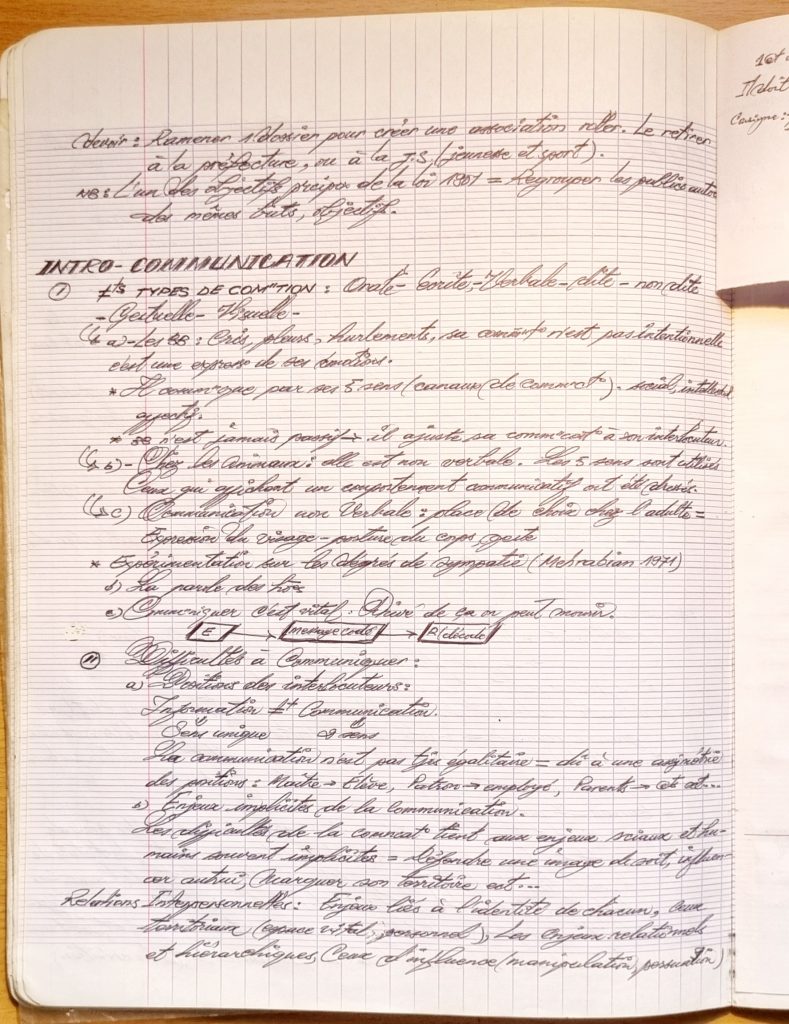 devoir : Ramener 1 dossier pour créer une association roller. Le retirer
à la préfecture, ou à la J.S. (jeunesse et sport).
NB : L'un des objectifs pcipox de la loi 1901 = Regrouper les publics autour
des mêmes buts, objectifs.
INTRO-COMMUNICATION
① ≠ts TYPES DE COM°TION : Orale - Ecrite - Verbale - dite - non dite
- Gestuelle - Visuelle -
a) - Les BB : Cris, pleurs, hurlements, sa comm n'est pas intentionnelle
c'est une express° de ses émotions.
* Il commque par ses 5 sens (canaux de commcat°). social, intellectuel
affectif.
* BB n'est jamais passif → il ajuste sa commcat° à son interlocuteur.
b) - Chez les animaux : elle est non verbale. Les 5 sens sont utilisés
Ceux qui affichent un comportement communicatif ont été dressés.
c) Communication non Verbale : place de choix chez l'adulte =
Expression du visage - posture du corps, geste
* Expérimentation sur les degrés de sympatie (Mehrabian 1971)
d) La parole des
e) Communiquer c'est vital : Privé de ça on peut mourir.
E → message codé → R (décode)
⑪ Difficultés à Communiquer :
a) Positions des interlocuteurs :
Information ≠t Communication.
Sens unique 2 sens
La communication n'est pas tjrs égalitaire = dû à une asymétrie
des positions : Maître → Élève, Patron → employé, Parents → et ...
b) Enjeux implicites de la communication.
Les difficultés de la commcat° tient aux enjeux sciaux et hu-
mains souvent implicites = Défendre une image de soit, influen-
cer autrui, Marquer son territoire est ...
Relations Interpersonnelles : Enjeux liés à l'identité de chacun, ceux
territoriaux (espace vital, personnel), Les enjeux relationnels
et hiérarchiques, Ceux d'influence (manipulation, persuasion)
Il doit
Consigne :